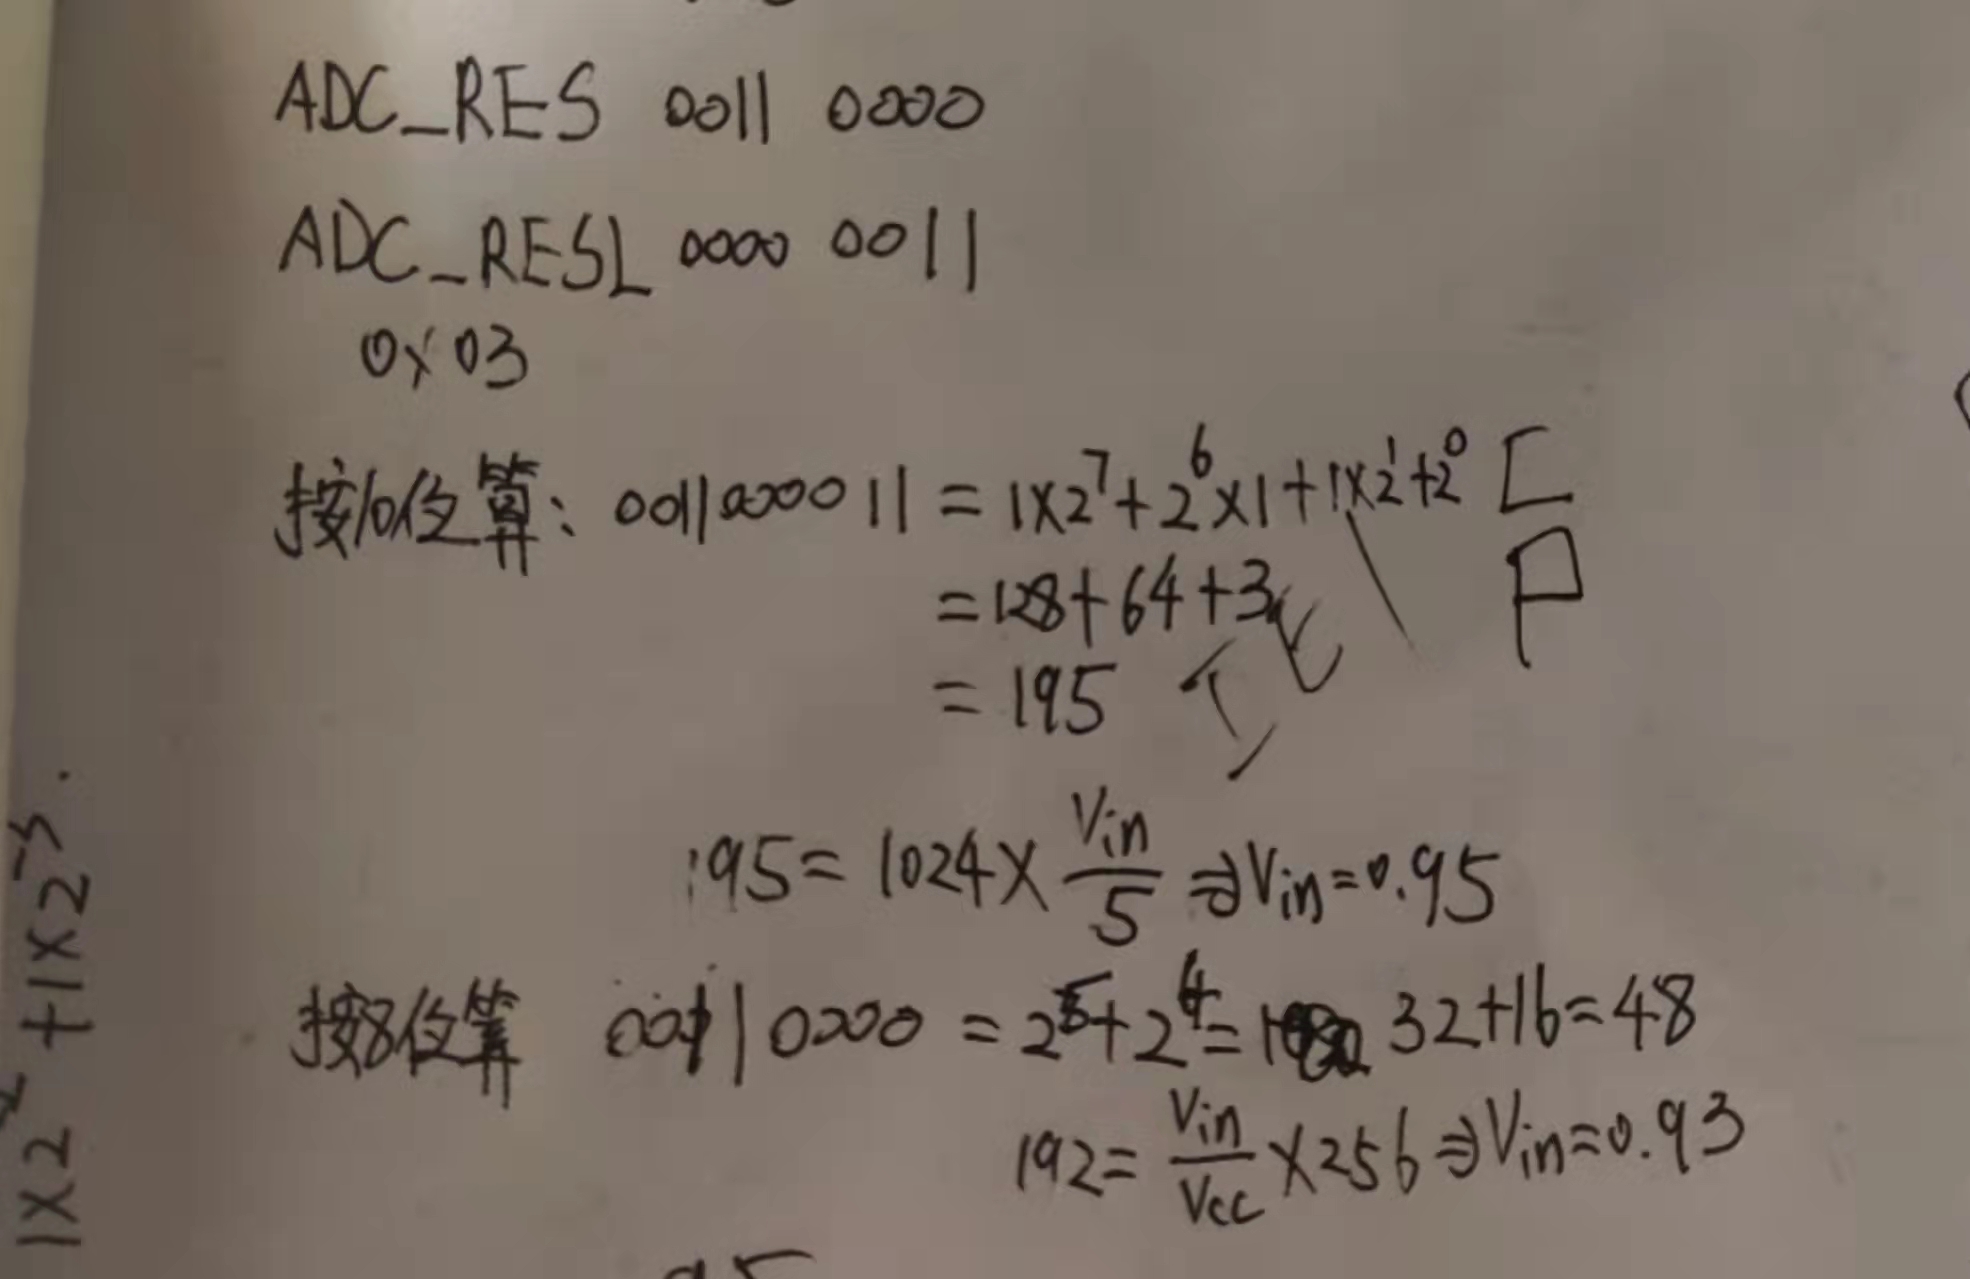 ADC_RES 0011 0000
ADC_RESL 0000 0011
0x03
按10位算: 0011000011 = 1×2⁷+2⁶×1+1×2¹+2⁰
=128+64+3
= 195
195= 1024× Vin/5 ⇒Vin=0.95
按8位算 0011 0000 = 2⁵+2⁴= 32+16=48
192= Vin/Vcc ×256 ⇒Vin=0.93